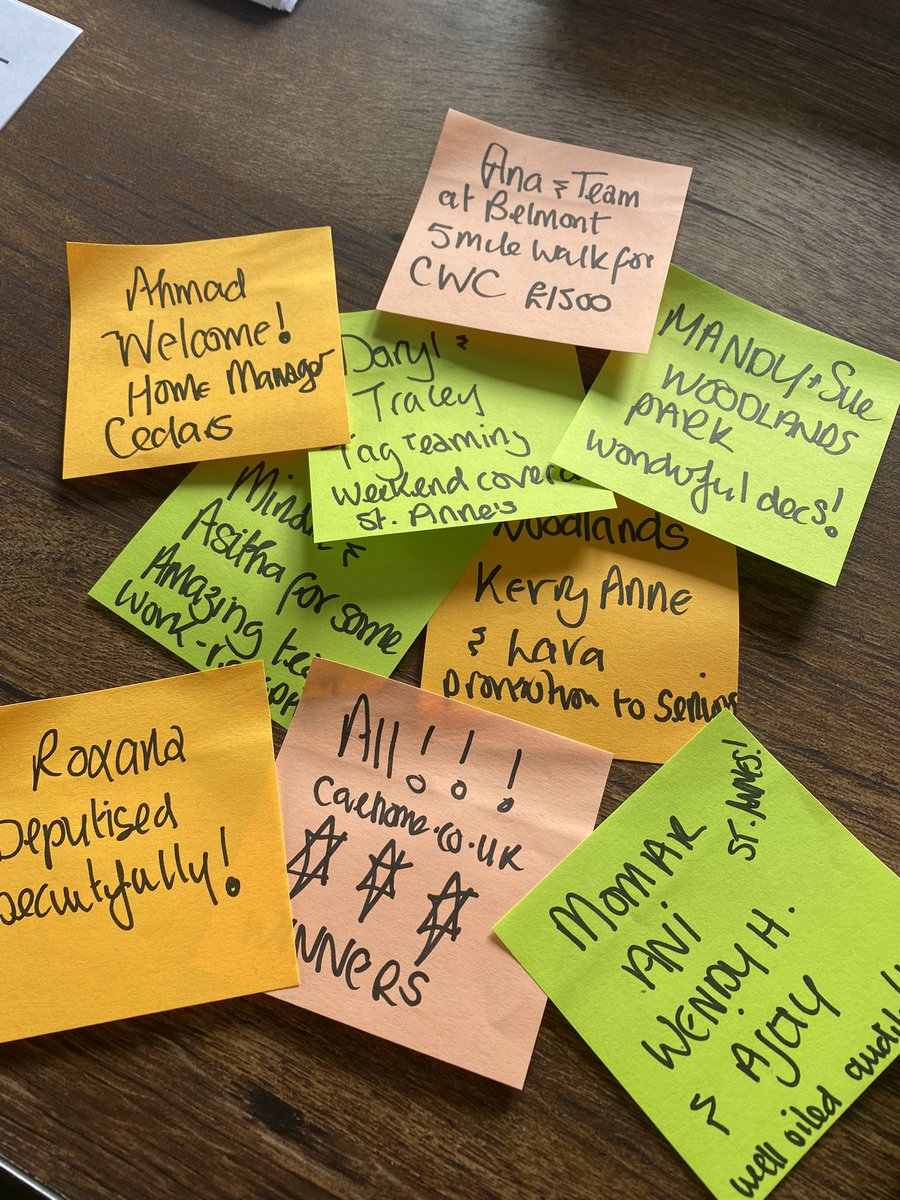 Ana & Team
at Belmont
5 mile walk for
CWC £1500
Ahmad
Welcome!
Home Manager
Cedars
Daryl &
Tracey
Tag Teaming
weekend cover
St. Anne's
MANDY + Sue
WOODLANDS
PARK
wonderful decs!
&
Asitha for some
Amazing
work
Woodlands
Kerry Anne
& Lara
promotion to Senior
Roxana
Deputised
beautifully!
All!!!
carehome.co.uk
WINNERS
ST. ANNES!
MOMAR
ANI
WENDY H.
& AJAY
well oiled